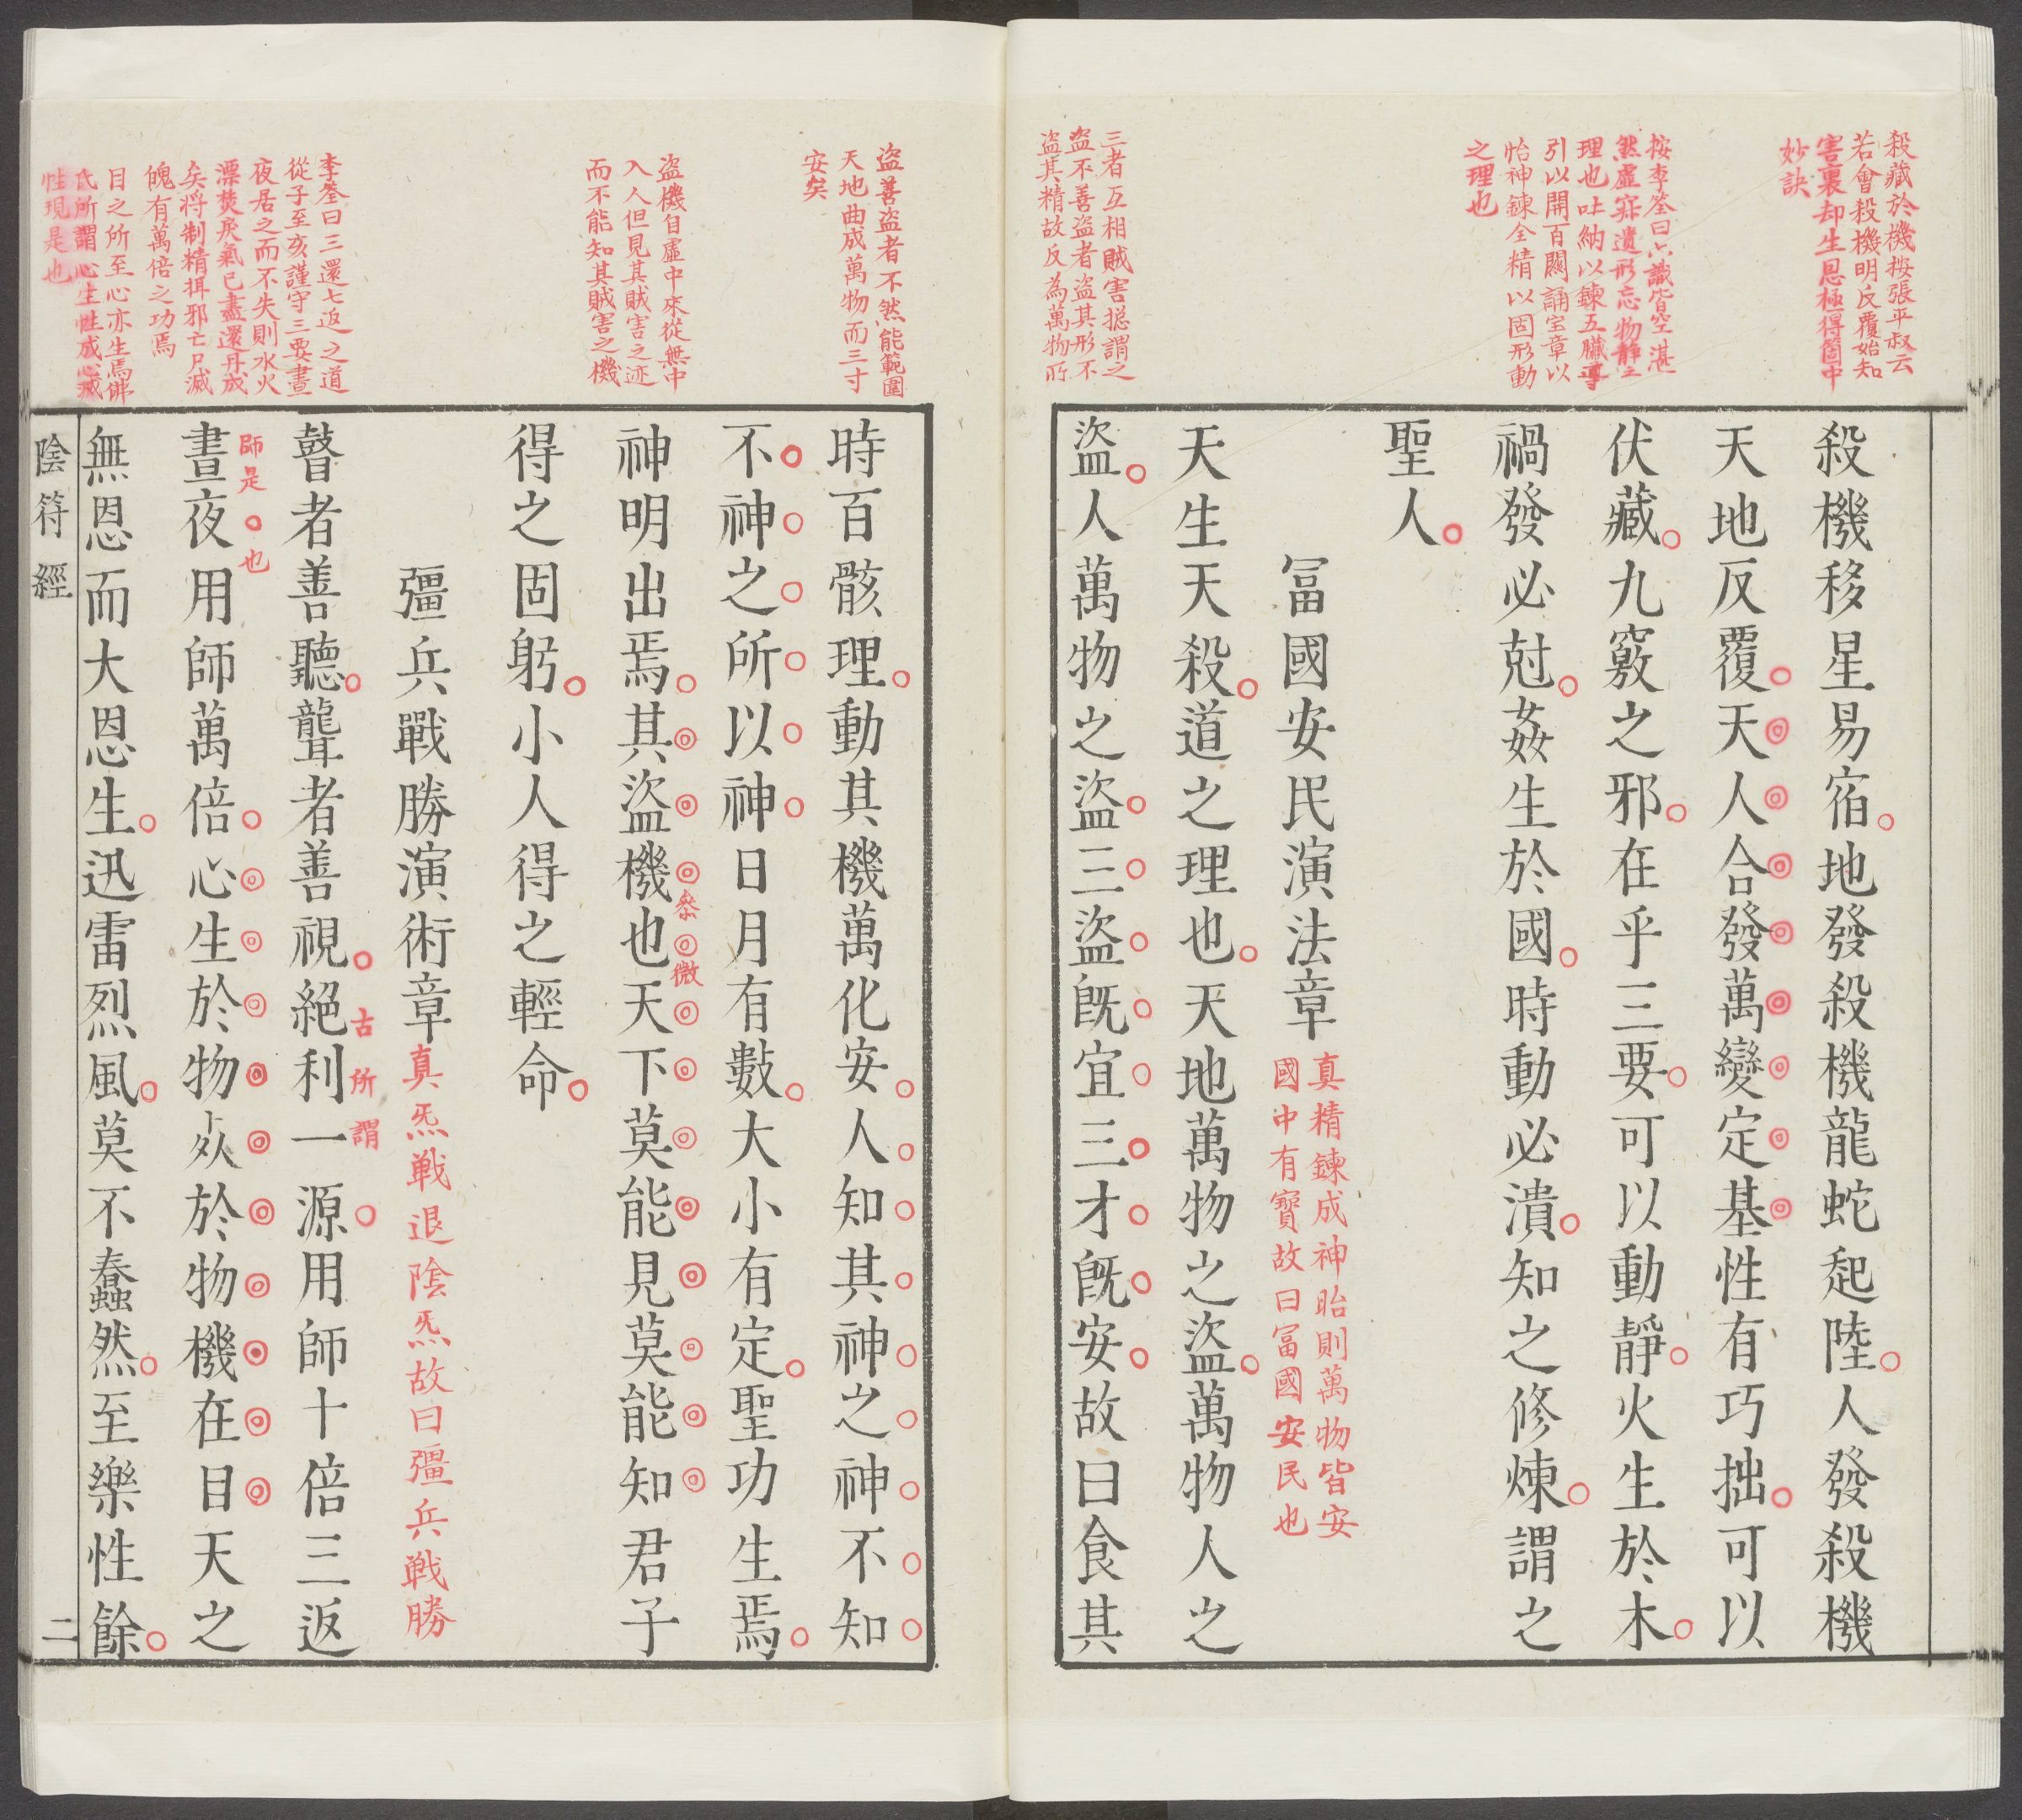 殺藏於機按張平叔云
若會殺機明反覆始知
害裏却生恩極得箇中
妙訣
按李筌曰六識皆空湛
然虛寂遺形忘物靜之
理也吐納以鍊五臟導
引以開百關誦宝章以
怡神鍊全精以固形動
之理也
三者互相賊害揔謂之
盗不善盗者盗其形不
盗其精故反為萬物所
殺機移星易宿地發殺機龍蛇起陸人發殺機
天地反覆天人合發萬變定基性有巧拙可以
伏藏九竅之邪在乎三要可以動靜火生於木
禍發必尅姦生於國時動必潰知之修煉謂之
聖人
冨國安民演法章
真精鍊成神胎則萬物皆安
國中有寶故曰冨國安民也
天生天殺道之理也天地萬物之盜萬物人之
盜人萬物之盜三盜既宜三才既安故曰食其
盗善盗者不然能範圍
天地曲成萬物而三寸
安矣
盗機自虛中來從無中
入人但見其賊害之迹
而不能知其賊害之機
李筌曰三還七返之道
從子至亥謹守三要晝
夜居之而不失則水火
漂焚戾氣已盡還丹成
矣将制精揖邪亡尸滅
魄有萬倍之功焉
目之所至心亦生焉佛
氏所謂心生性滅心滅
性現是也
時百骸理動其機萬化安人知其神之神不知
不神之所以神日月有數大小有定聖功生焉
神明出焉其盜機也天下莫能見莫能知君子
叅微
得之固躬小人得之輕命
彊兵戰勝演術章真炁戦退陰炁故曰彊兵戦勝
瞽者善聽聾者善視絕利一源用師十倍三返
古所謂
師是也
晝夜用師萬倍心生於物死於物機在目天之
無恩而大恩生迅雷烈風莫不蠢然至樂性餘
陰符經
二